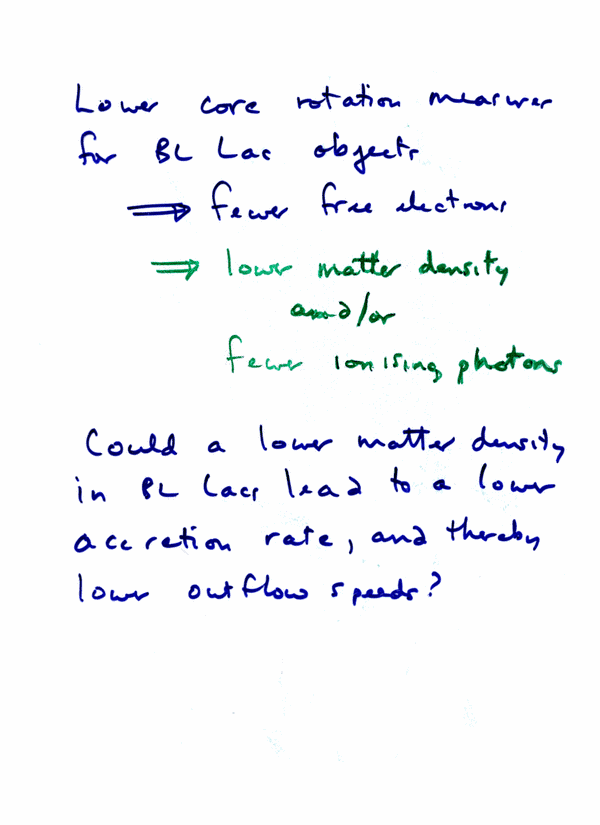 Lower core rotation measures
for BL Lac objects
⟹ fewer free electrons
⟹ lower matter density
and/or
fewer ionising photons
Could a lower matter density
in BL Lacs lead to a lower
accretion rate, and thereby
lower outflow speeds?